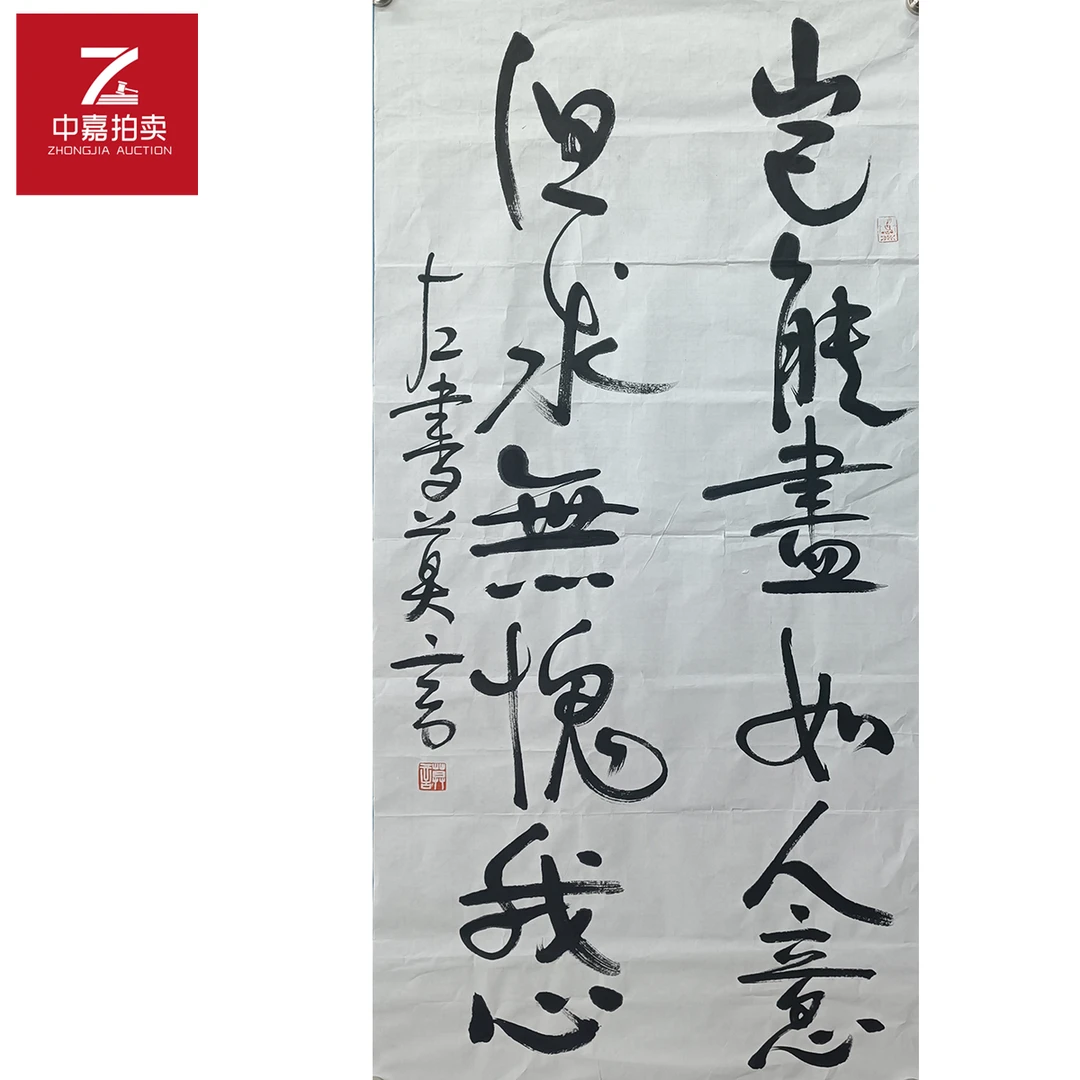 中嘉拍卖
ZHONGJIA AUCTION
豈能盡如人意
但求無愧我心
左書莫言
莫言